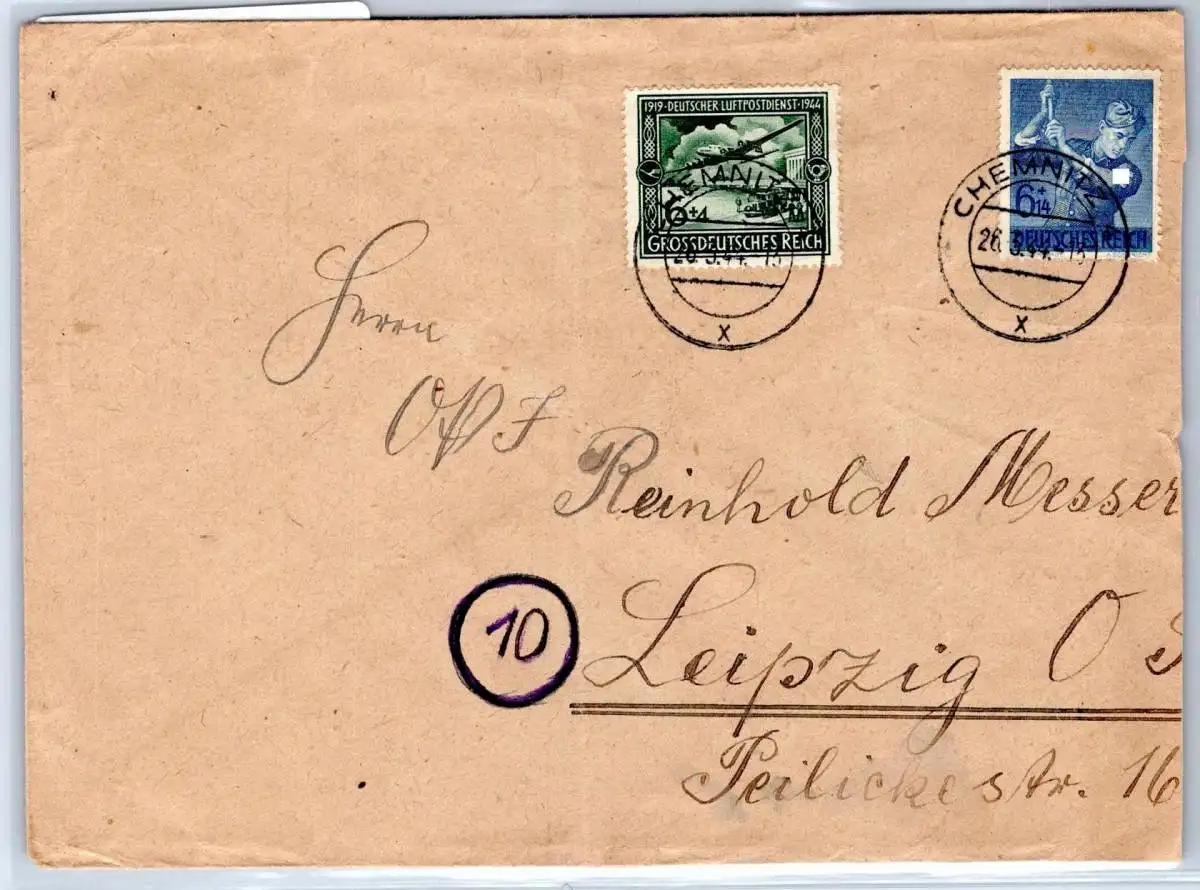 1919·DEUTSCHER LUFTPOSTDIENST·1944
6+4
GROSSDEUTSCHES REICH
6+14
DEUTSCHES REICH
CHEMNITZ
26.3.44.
x
CHEMNITZ
26.3.44.
x
Herrn
Reinhold Messer
10
Leipzig O
Peilickestr. 16